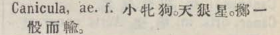 Canicula, ae. f. 小牝狗。天狼星。擲一
骰而輸。